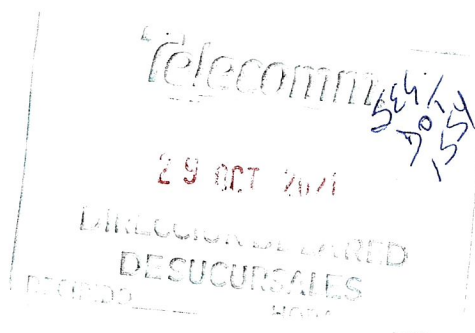 Telecomm
29 OCT 2021
DIRECCION DE LA RED
DE SUCURSALES
RECIBIDO HORA